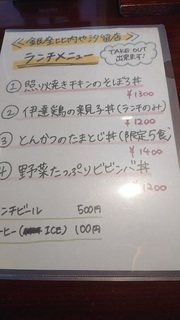 銀座比内や汐留店
TAKE OUT
出来ます!
ランチメニュー
① 照り焼きチキンのそぼろ丼
¥1300
② 伊達鶏の親子丼(ランチのみ)
¥1200
③ とんかつのたまとじ丼(限定5食)
¥1400
4 野菜たっぷりビビンバ丼
¥1200
ンチビール 500円
ーヒー( ICE) 100円